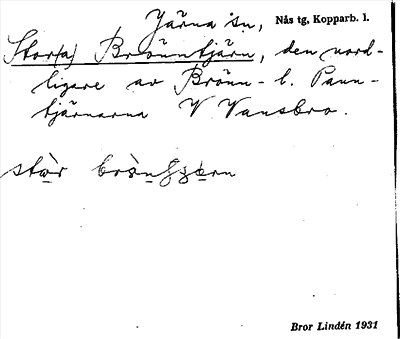 Järna sn, Nås tg, Kopparb. l.
Stor(a) Brönntjärn, den nord-
ligare av Brönn- l. Pann-
tjärnarna V Vansbro.
Bror Lindén 1931